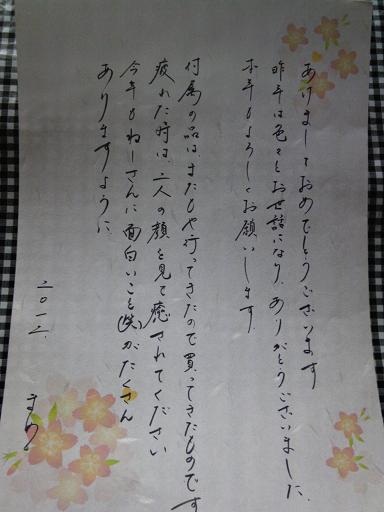 あけましておめでとうございます
昨年は色々とお世話になり、ありがとうございました、
本年もよろしくお願いします。
付属の品は、またもや行ってきたので買ってきたものです
疲れた時は、二人の顔を見て癒されてください
今年もねーさんに面白いこと(笑)がたくさん
ありますように
二〇一二.
まり